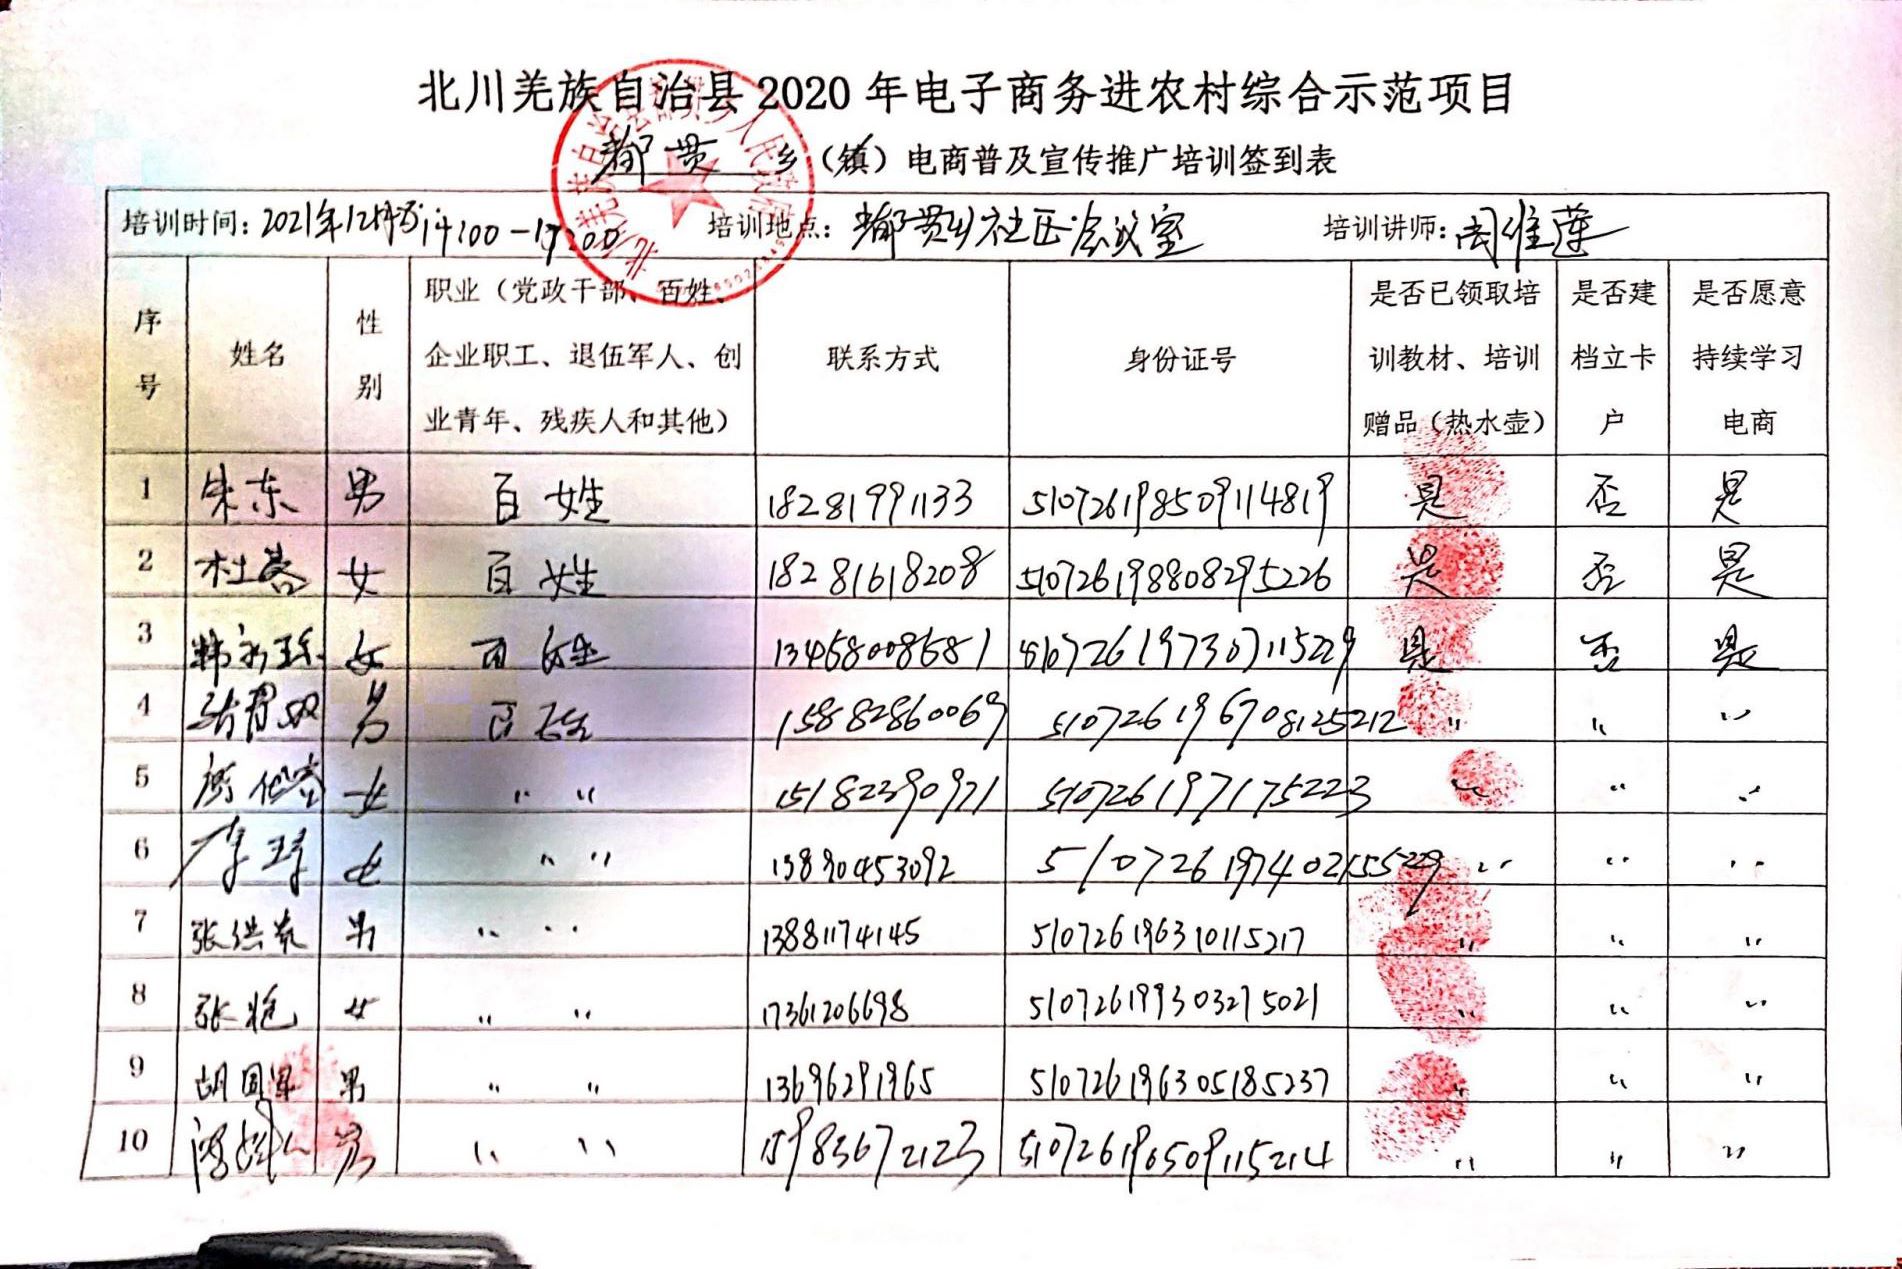 北川羌族自治县 2020 年电子商务进农村综合示范项目
都贯 乡（镇）电商普及宣传推广培训签到表
培训时间：2021年12月 14:00-17:00 培训地点：都贯乡社区会议室 培训讲师：周维莲
序号 姓名 性别 职业（党政干部、百姓、企业职工、退伍军人、创业青年、残疾人和其他） 联系方式 身份证号 是否已领取培训教材、培训赠品（热水壶） 是否建档立卡户 是否愿意持续学习电商
1 朱东 男 百姓 18281991133 510726198509114819 是 否 是
2 杜蓉 女 百姓 18281618208 510726198808295226 是 否 是
3 女 百姓 13468008681 510726197307115229 是 否 是
4 男 百姓 15882860069 510726196708125212 〃 〃 〃
5 女 〃 〃 15182390971 510726197175223 〃 〃 〃
6 李琼 女 〃 〃 13890453092 510726197402155229 〃 〃 〃
7 张洪 男 〃 〃 13881174145 510726196310115217 〃 〃 〃
8 张艳 女 〃 〃 17361206698 510726199303275021 〃 〃 〃
9 胡国军 男 〃 〃 13696291965 510726196305185237 〃 〃 〃
10 男 〃 〃 15983672123 510726196509115214 〃 〃 〃